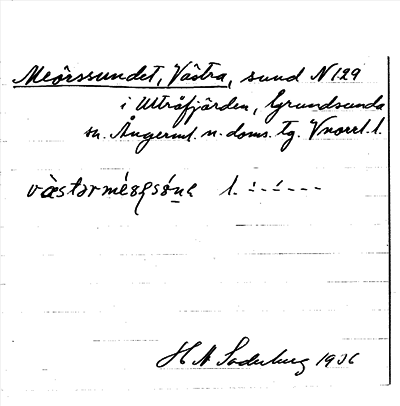 Meörssundet, Västra, sund N 129
i Ultråfjärden, Grundsunda
sn. Ångerml. n. doms. tg. Vnorrl. l.
H N Soderberg 1936